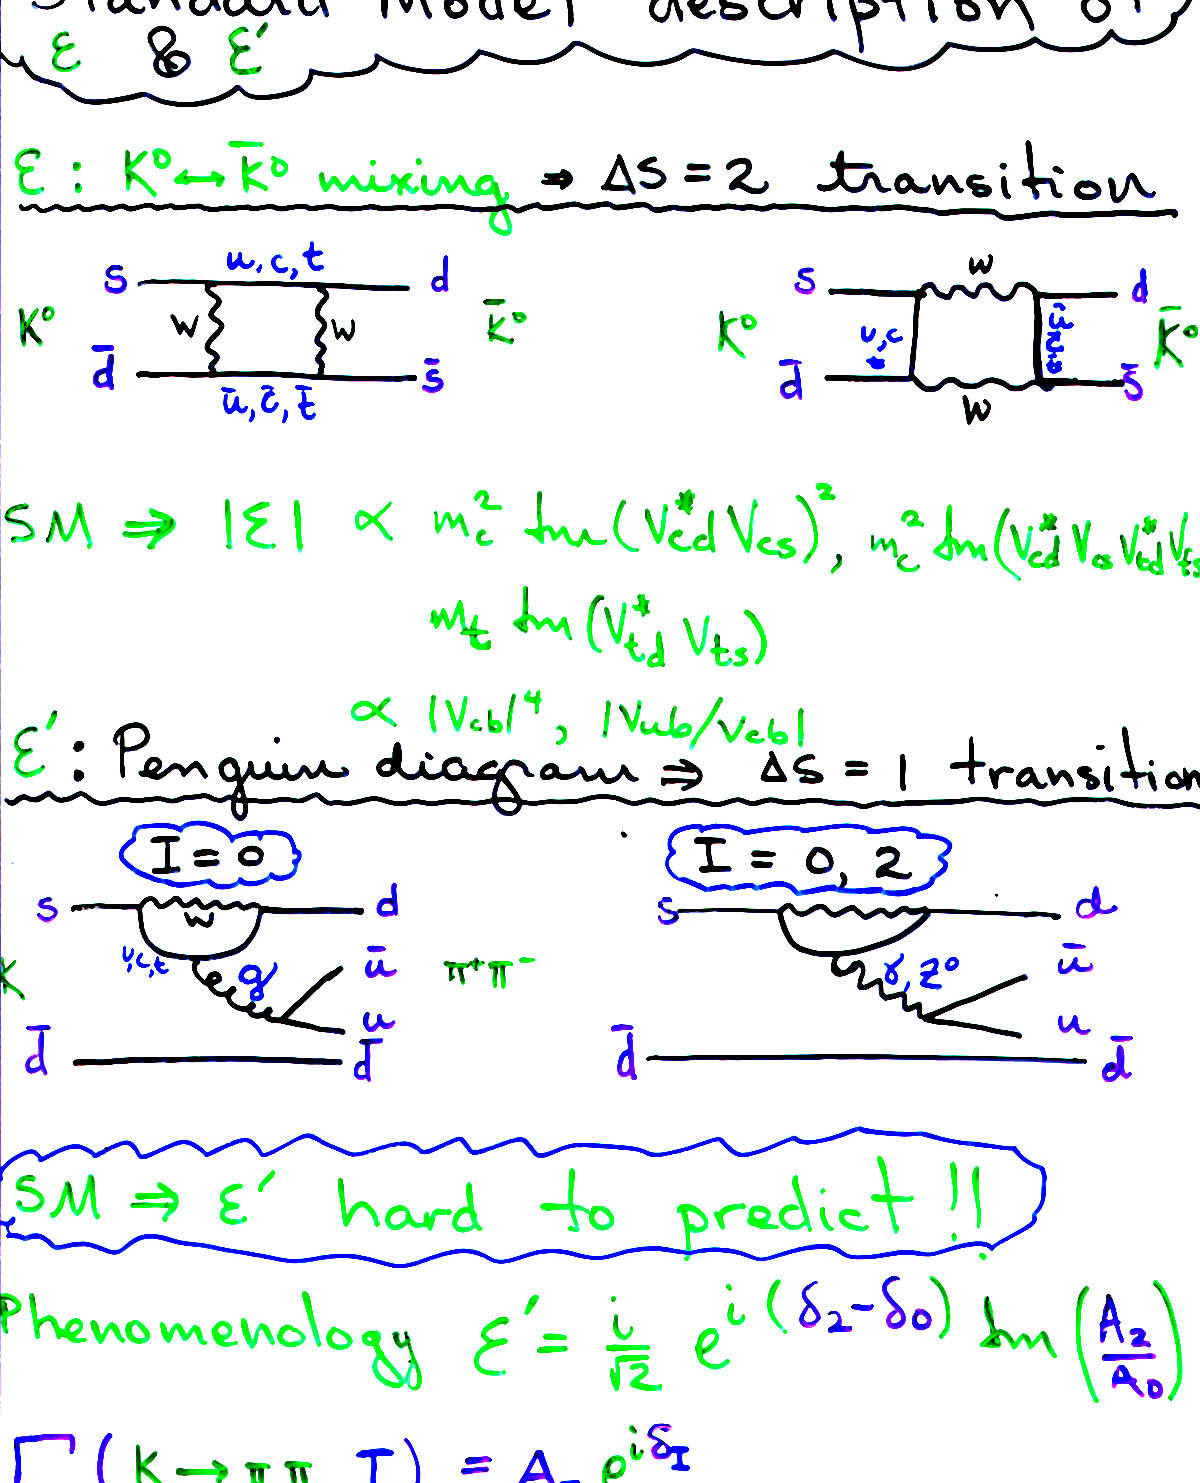 Standard Model description of
ε & ε′
ε : K⁰ ↔ K̄⁰ mixing ⇒ ΔS = 2 transition
s u, c, t d s w d
K⁰ w w K̄⁰ K⁰ u, c t ū c̄ t̄ K̄⁰
d̄ ū, c̄, t̄ s̄ d̄ w s̄
SM ⇒ |ε| ∝ m_c² Im(V*_cd V_cs)², m_c² Im(V*_cd V_cs V*_td V_ts
m_t Im(V*_td V_ts)
∝ |V_cb|⁴, |V_ub/V_cb|
ε′ : Penguin diagram ⇒ ΔS = 1 transition
I = 0 I = 0, 2
s w d s d
K u,c,t g ū π⁺π⁻ γ, Z⁰ ū
u u
d̄ d̄ d̄ d̄
SM ⇒ ε′ hard to predict !!
Phenomenology ε′ = i/√2 e^{i(δ₂-δ₀)} Im (A₂/A₀)
Γ (K → ππ I) = A e^{iδ_I}